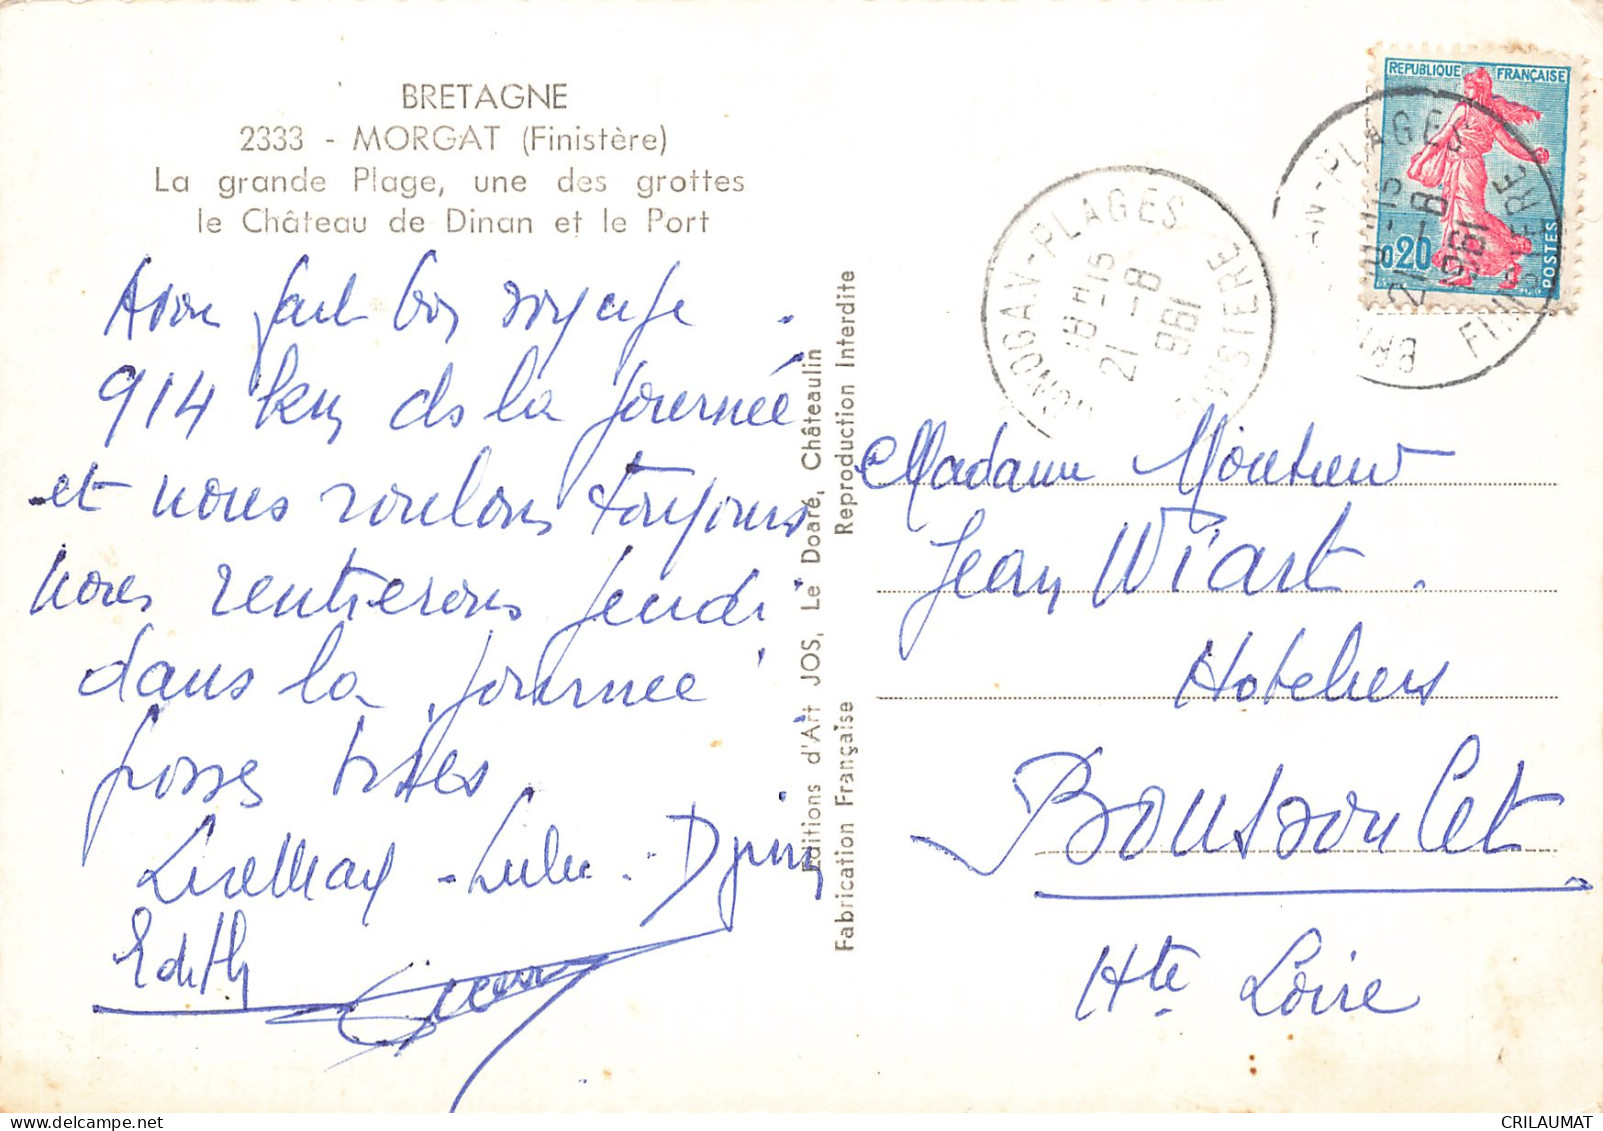 BRETAGNE
2333 - MORGAT (Finistère)
La grande Plage, une des grottes
le Château de Dinan et le Port
Avons fait bon voyage.
914 km ds la journée
et nous roulons toujours
nous rentrerons jeudi
dans la journée
grosses bises
Lulu. Djinn
Edith
Editions d'Art JOS, Le Doaré, Châteaulin
Reproduction Interdite
Fabrication Française
REPUBLIQUE FRANÇAISE
0,20
POSTES
-PLAGES
FINISTERE
18H-15
21-8
1961
-PLAGES
FINISTERE
18H-15
21-8
1961
Madame Monsieur
Jean Wiart.
Hoteliers
Boussoulet
Hte Loire
CRILAUMAT